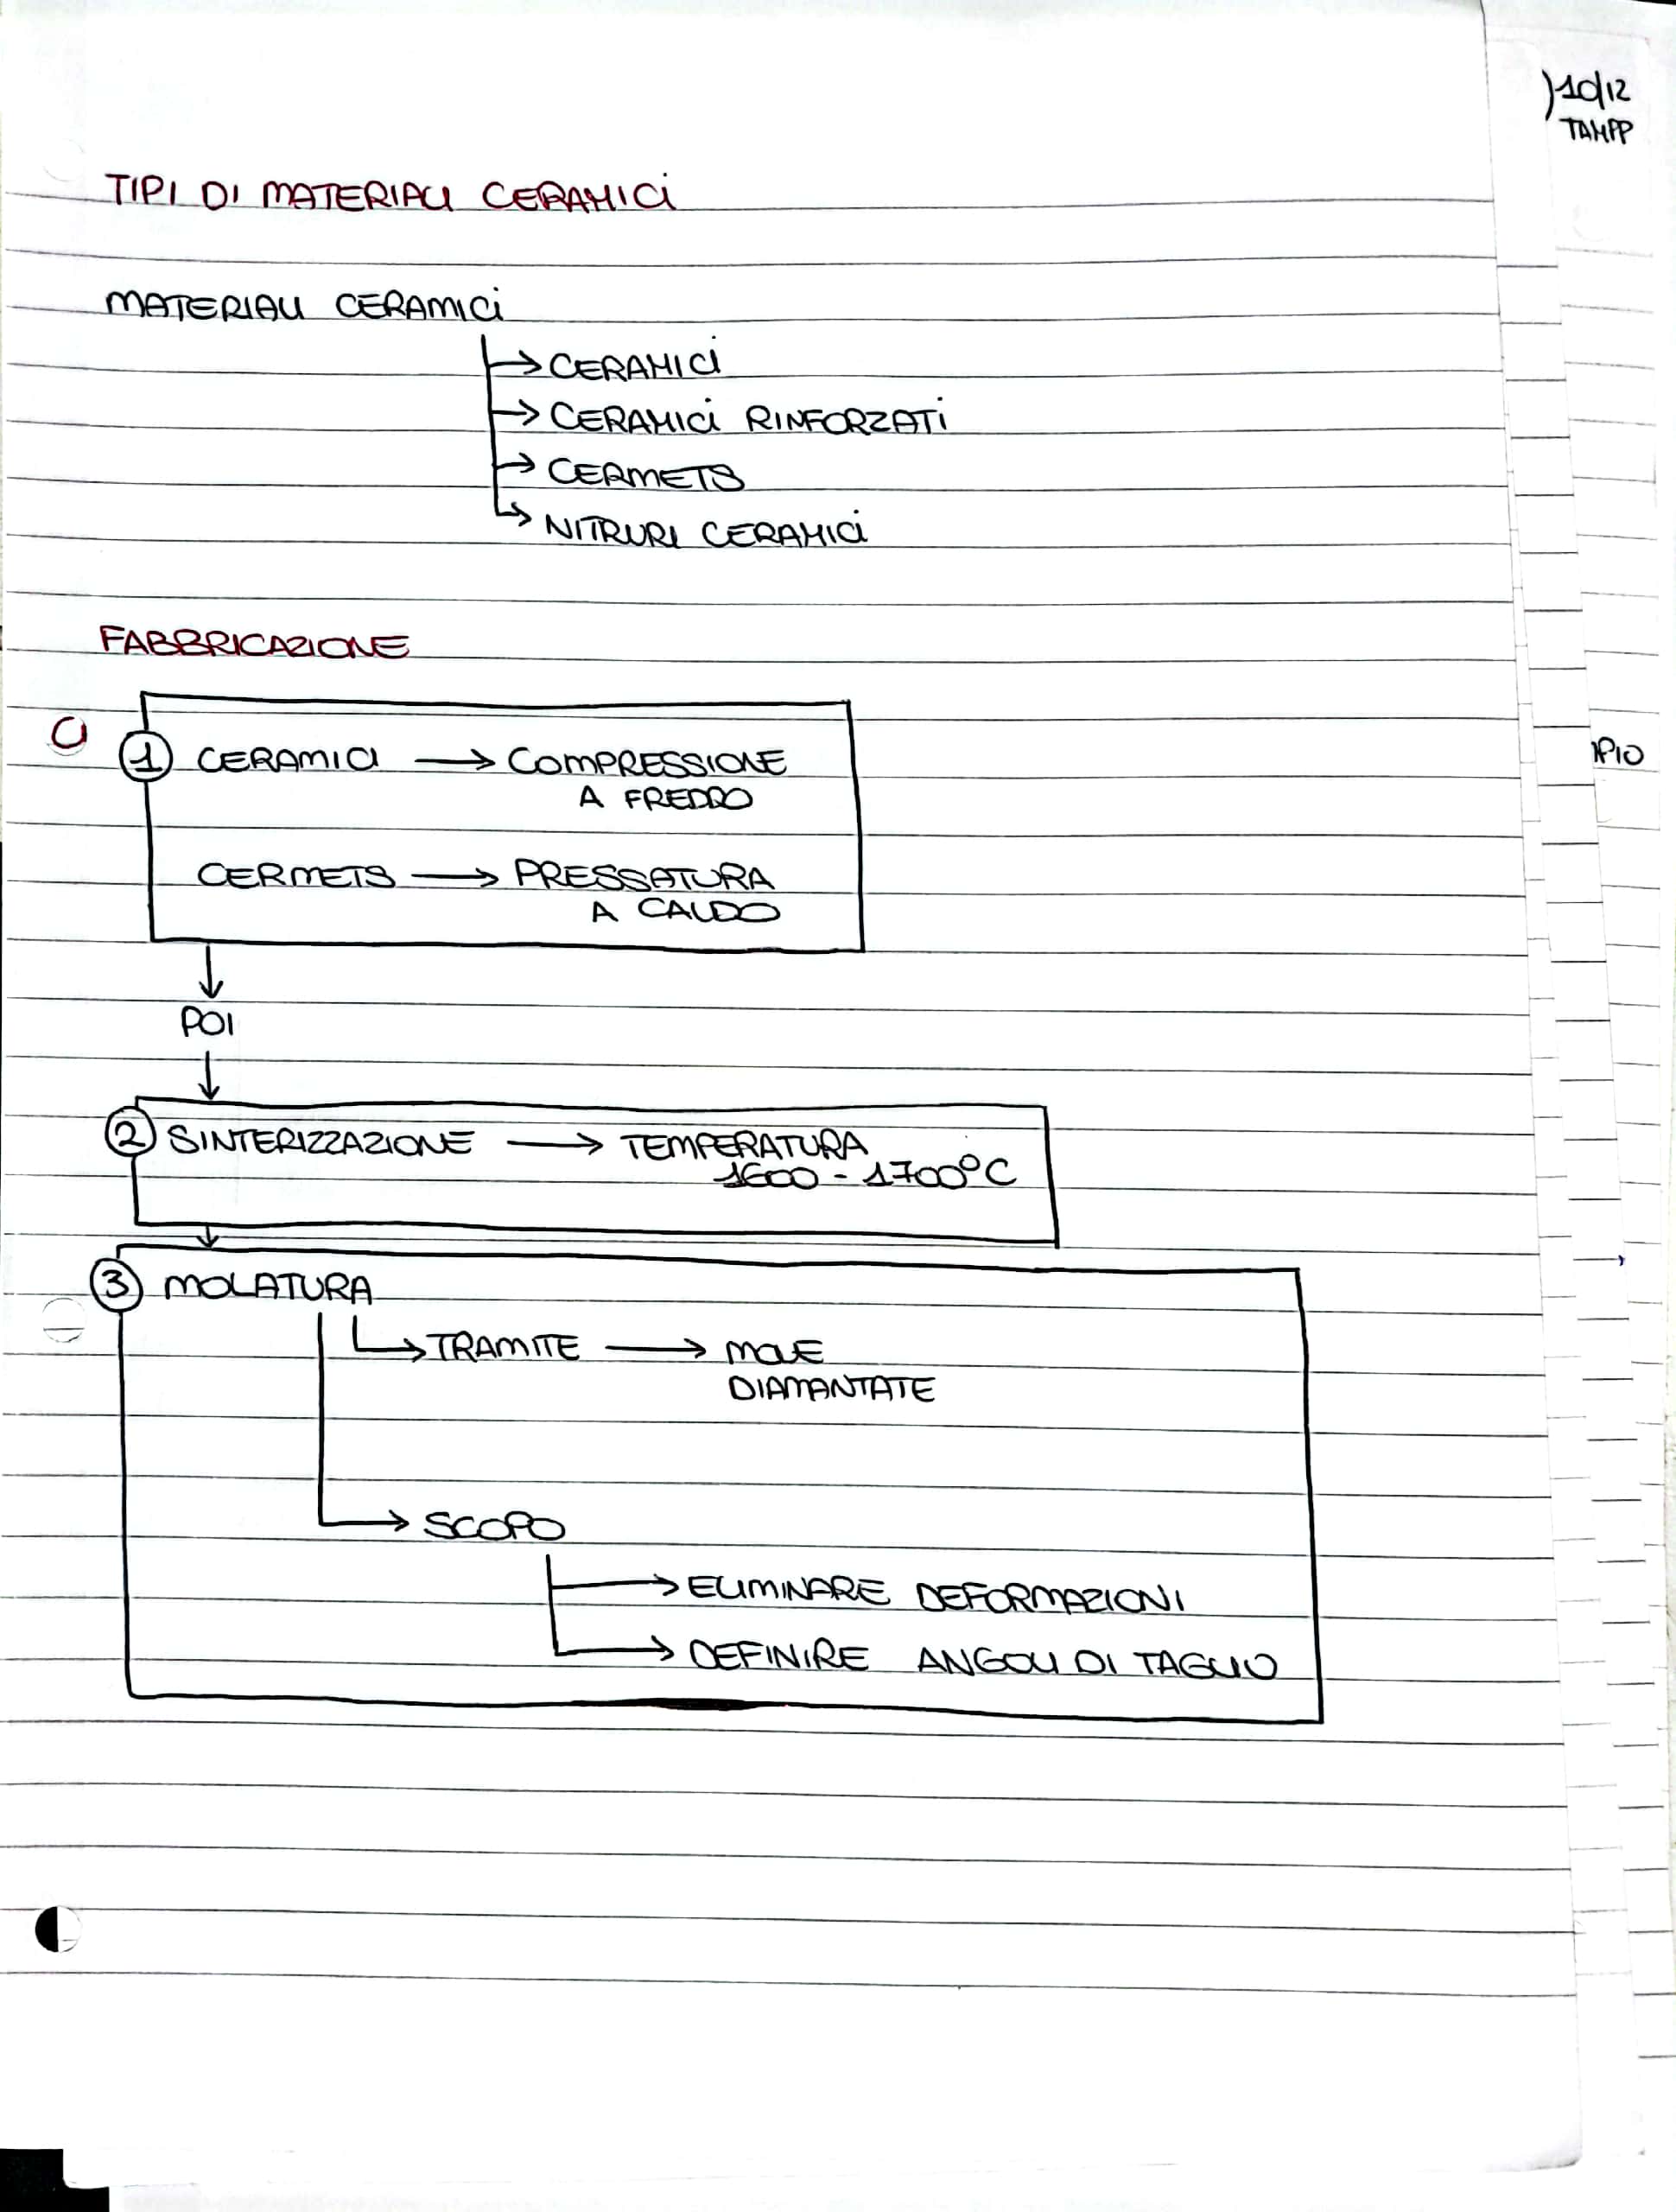 )10/12
TAMPP
TIPI DI MATERIALI CERAMICI
MATERIALI CERAMICI
→ CERAMICI
→ CERAMICI RINFORZATI
→ CERMETS
→ NITRURI CERAMICI
FABBRICAZIONE
1 CERAMICI → COMPRESSIONE
A FREDDO
CERMETS → PRESSATURA
A CALDO
POI
2 SINTERIZZAZIONE → TEMPERATURA
1600 - 1700°C
3 MOLATURA
→ TRAMITE → MOLE
DIAMANTATE
→ SCOPO
→ ELIMINARE DEFORMAZIONI
→ DEFINIRE ANGOLI DI TAGLIO